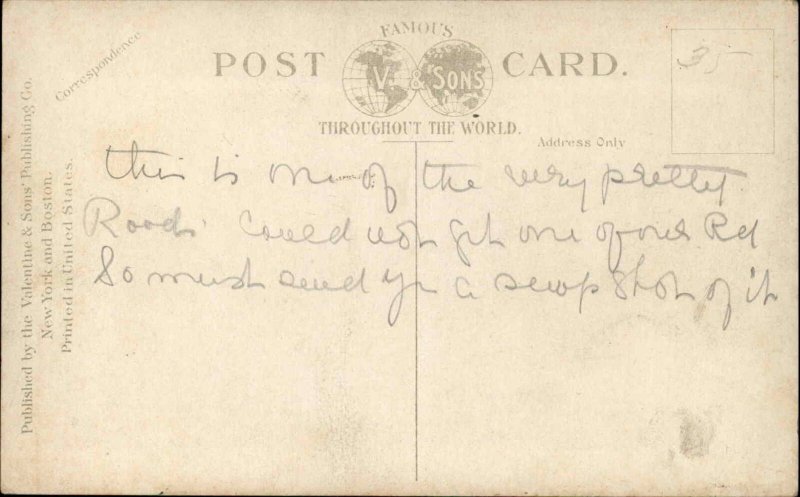 FAMOUS
POST CARD.
V. & SONS
THROUGHOUT THE WORLD.
Correspondence
Address Only
35
this is one of the very pretty
Roads. Could not get one of our Rd
So must send yr a snap Shot of it
Published by the Valentine & Sons' Publishing Co.
New York and Boston.
Printed in United States.